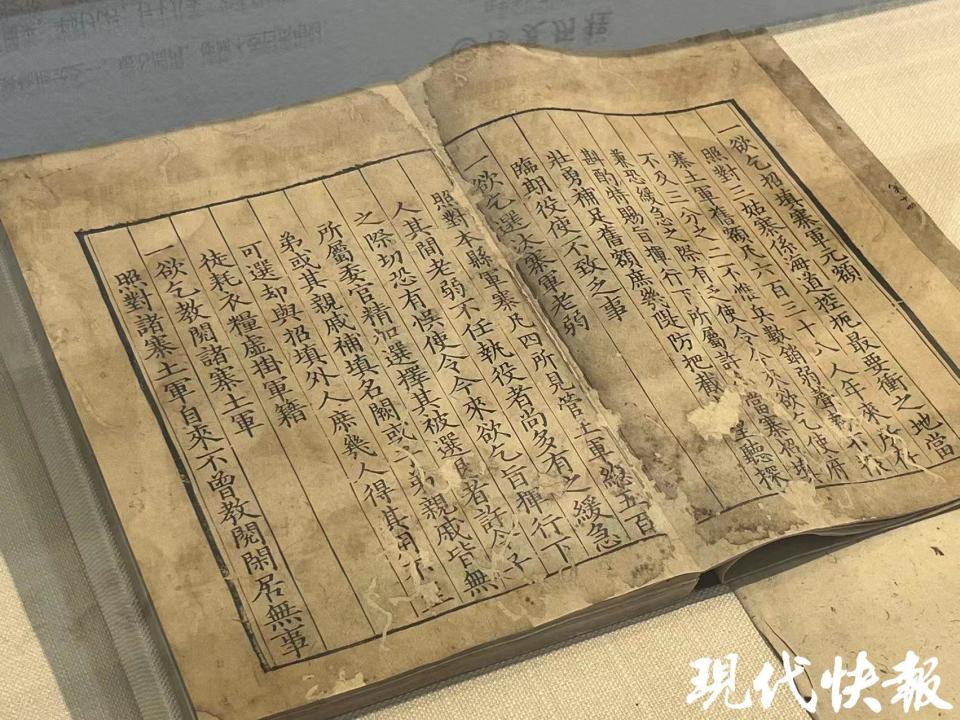 一欲乞招填寨軍元額
照對三姑寨係海道控扼最要衝之地當
寨土軍舊額凡六百三十八人年來所存
不及三分之二不惟兵數銷弱
兼恐緩急之際有乏使令欲乞使府
斟酌特賜旨揮行下所屬許當寨招募
壯勇補足舊額庶幾隄防把截聽探
臨期役使不致乏事
一欲乞選汰寨軍老弱
照對本縣軍寨凡四所見管土軍總五百
人其間老弱不任執役者尚多有之緩急
之際切恐有誤使令今來欲乞旨揮行下
所屬委官精加選擇其被選者許令子
弟或其親戚補填名闕或子弟親戚皆無
可選却與招填外人庶幾人得其用不
徒耗衣糧虛掛軍籍
一欲乞教閱諸寨土軍
照對諸寨土軍自來不曾教閱閑居無事
现代快報